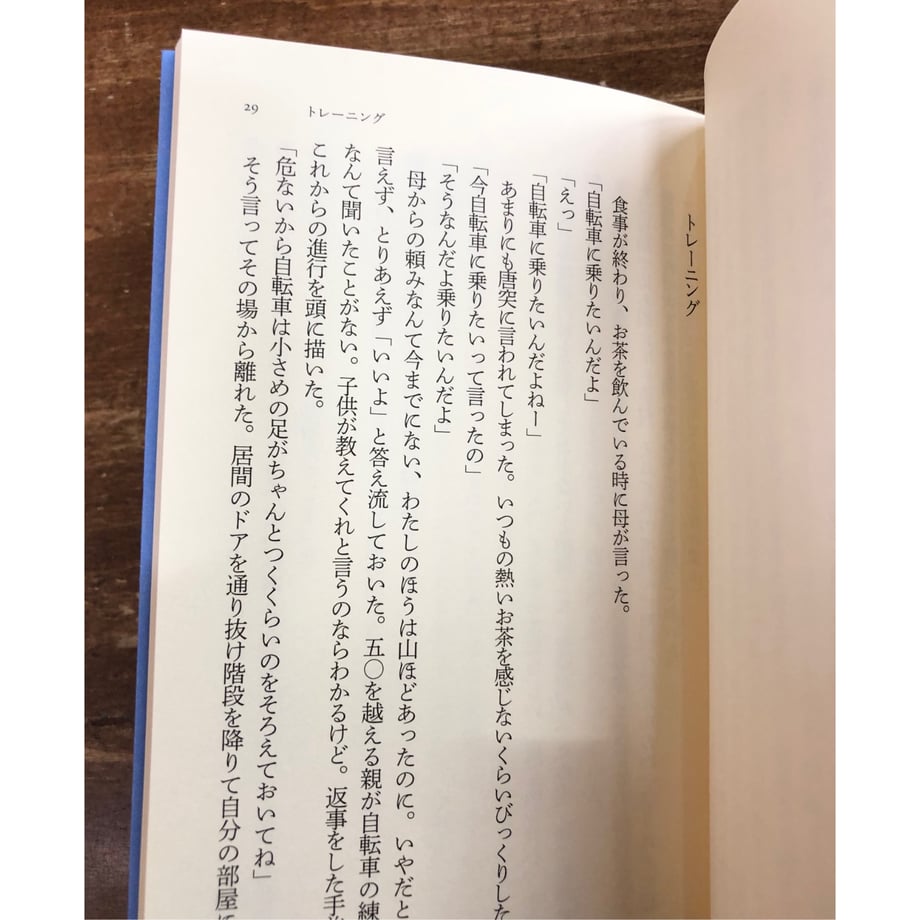 29
トレーニング
トレーニング
食事が終わり、お茶を飲んでいる時に母が言った。
「自転車に乗りたいんだよ」
「えっ」
「自転車に乗りたいんだよねー」
あまりにも唐突に言われてしまった。いつもの熱いお茶を感じないくらいびっくりした
「今自転車に乗りたいって言ったの」
「そうなんだよ乗りたいんだよ」
母からの頼みなんて今までにない、わたしのほうは山ほどあったのに。いやだと
言えず、とりあえず「いいよ」と答え流しておいた。五〇を越える親が自転車の練
なんて聞いたことがない。子供が教えてくれと言うのならわかるけど。返事をした手
これからの進行を頭に描いた。
「危ないから自転車は小さめの足がちゃんとつくくらいのをそろえておいてね」
そう言ってその場から離れた。居間のドアを通り抜け階段を降りて自分の部屋に